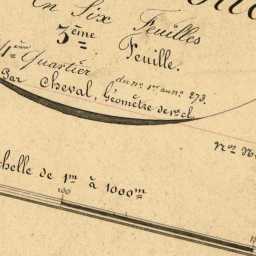 En Six Feuilles
3ème Feuille.
4ème Quartier
du n°. 1er au n°. 273.
Par Cheval, Géomètre de 1re cl.
chelle de 1m à 1000m
100